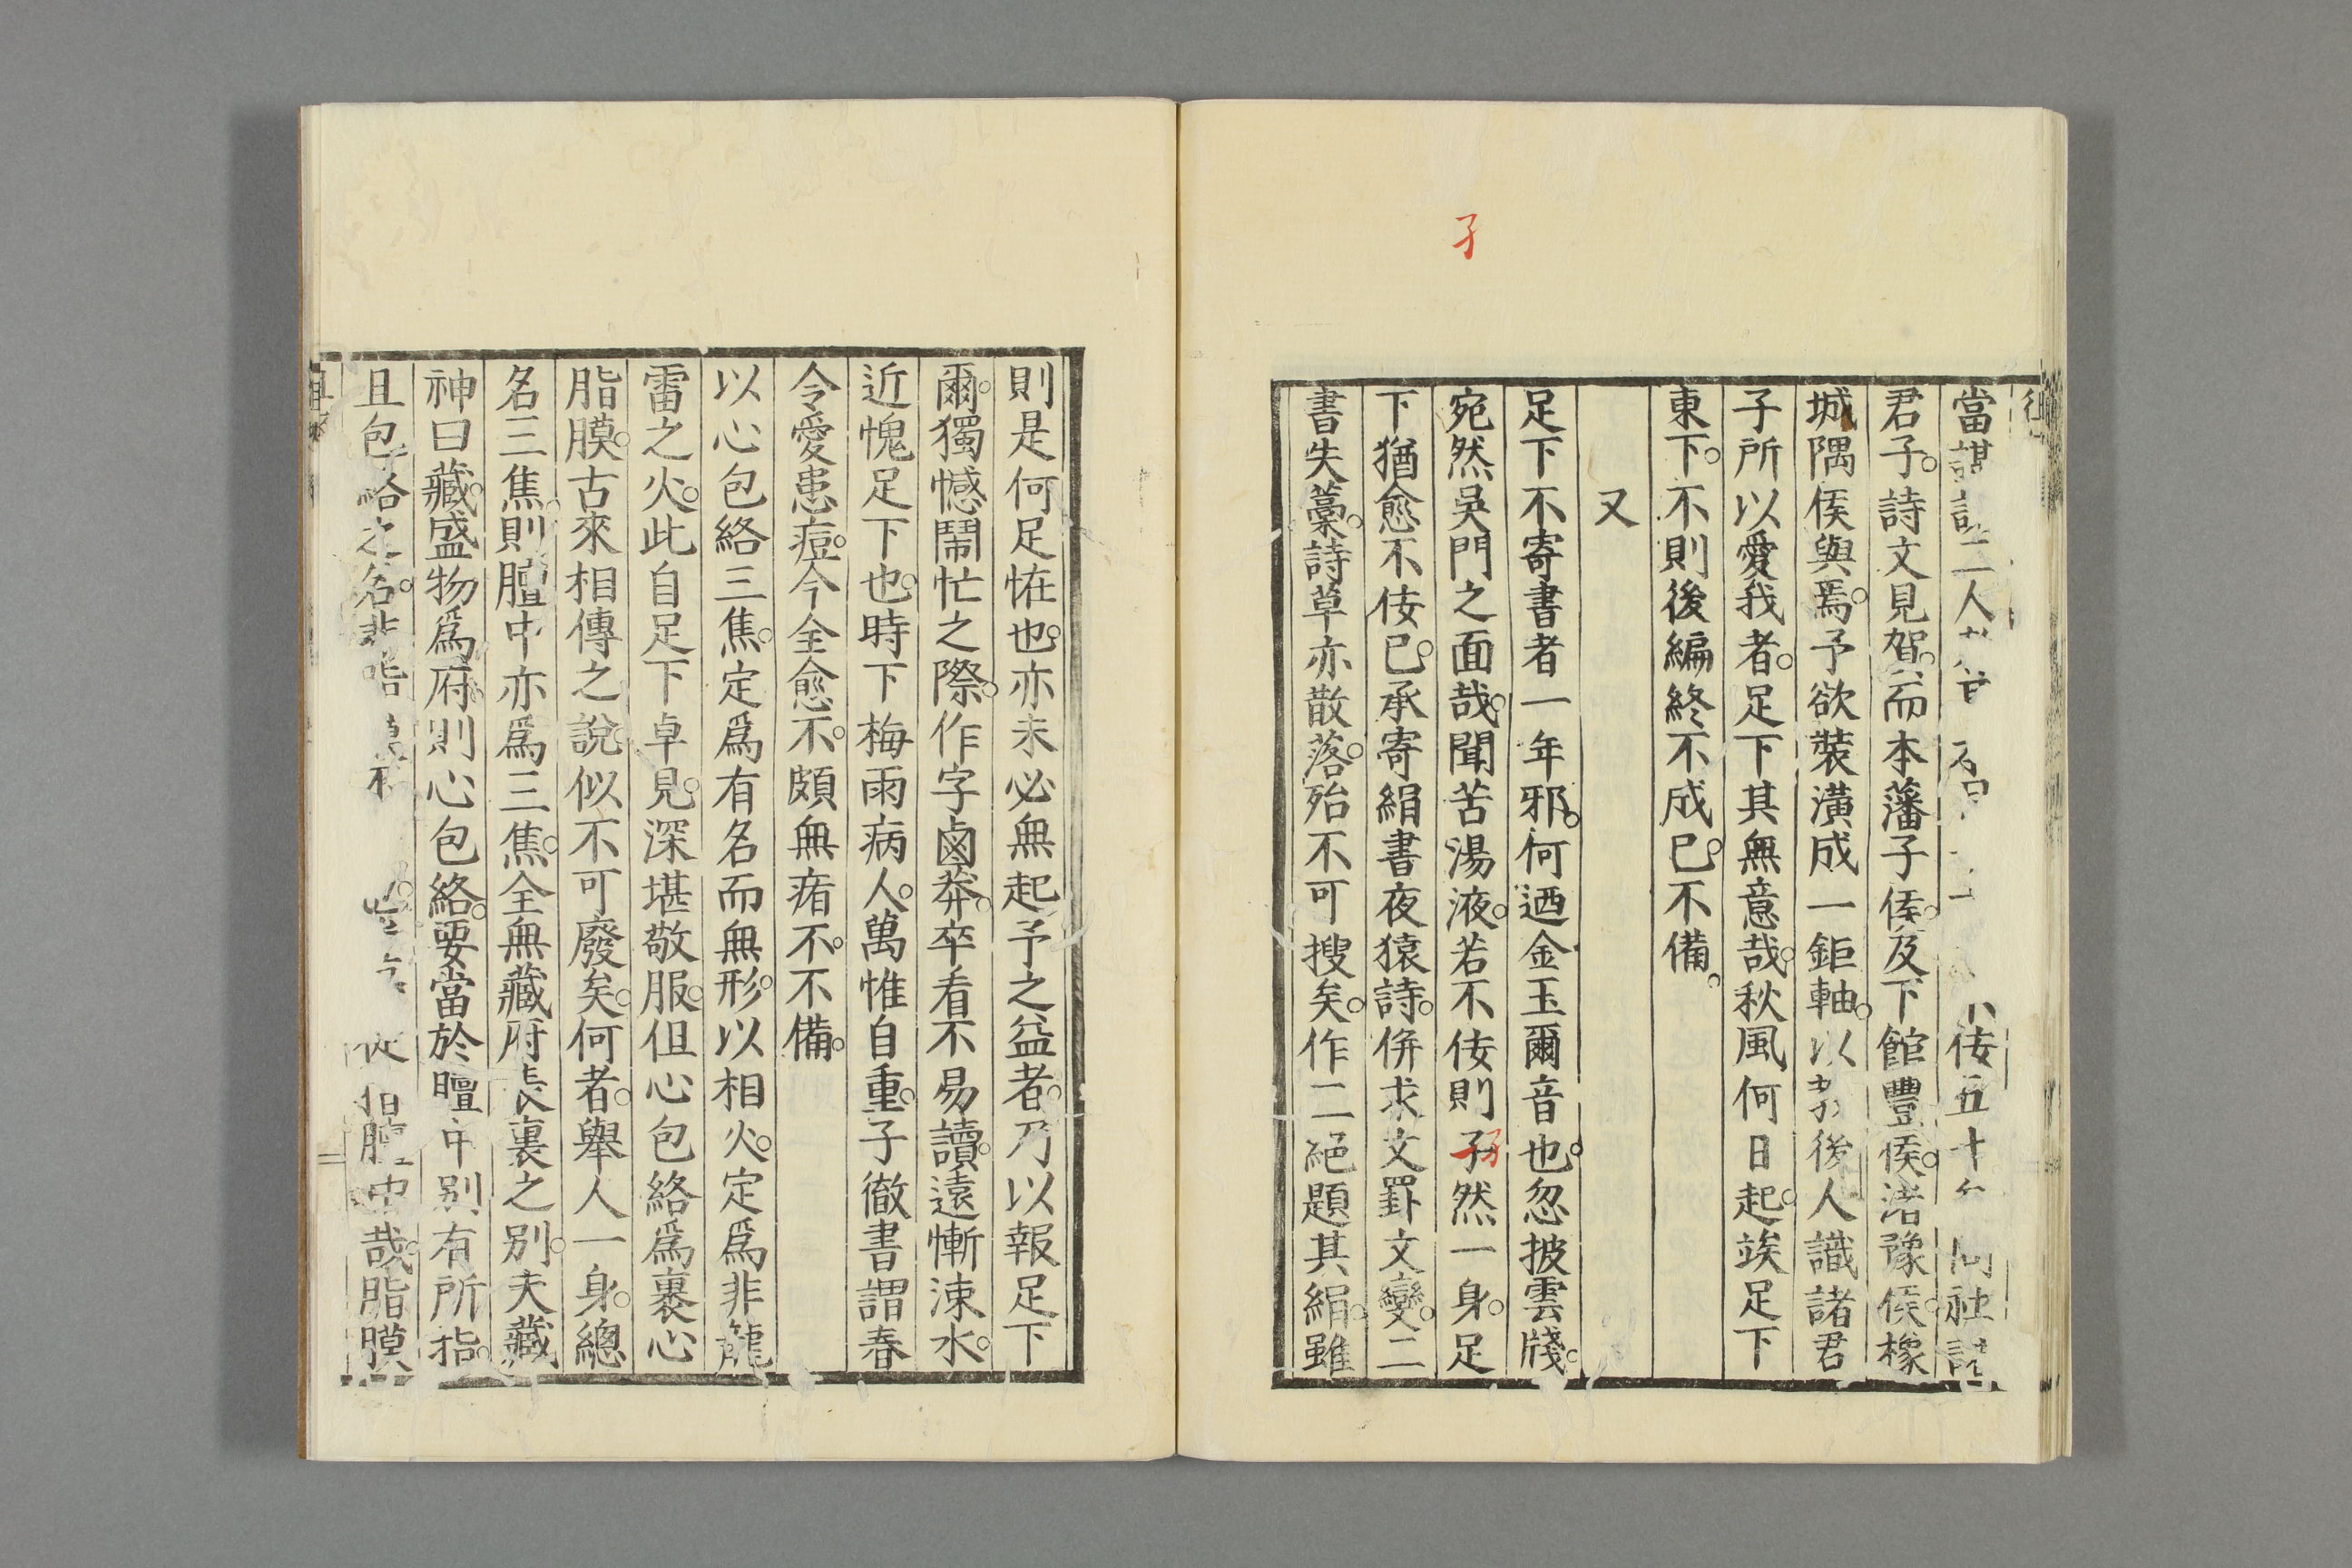 孑
當謀諸二人
侫五十 同社諸
君子。詩文見賀。而本藩子侯。及下館豐侯。渚豫侯。椽
城隅侯與焉。予欲裝潢成一鉅軸。以教後人識諸君
子所以愛我者。足下其無意哉。秋風何日起。竢足下
東下。不則後編終不成已。不備。
又
足下不寄書者一年邪。何迺金玉爾音也。忽披雲牋。
宛然吳門之面哉。聞苦湯液。若不侫則孑然一身。足
下猶愈不侫已。承寄絹書夜猿詩。併求文罫文變。二
書失藁。詩草亦散落。殆不可搜矣。作二絕題其絹。雖
則是何足恠也。亦未必無起予之益者。乃以報足下
爾。獨憾鬧忙之際。作字鹵莽。卒看不易讀。遠慚涑水。
近愧足下也。時下梅雨病人。萬惟自重。子徹書謂春
令愛患痘。今全愈不。頗無瘏不。不備。
以心包絡三焦。定爲有名而無形。以相火。定爲非龍
雷之火。此自足下卓見。深堪敬服。但心包絡爲裹心
脂膜。古來相傳之說。似不可廢矣。何者。舉人一身。總
名三焦。則膻中亦爲三焦。全無藏府表裏之別。夫藏
神曰藏。盛物爲府。則心包絡。要當於膻中別有所指。
且包絡之名。非
膻中哉。脂膜